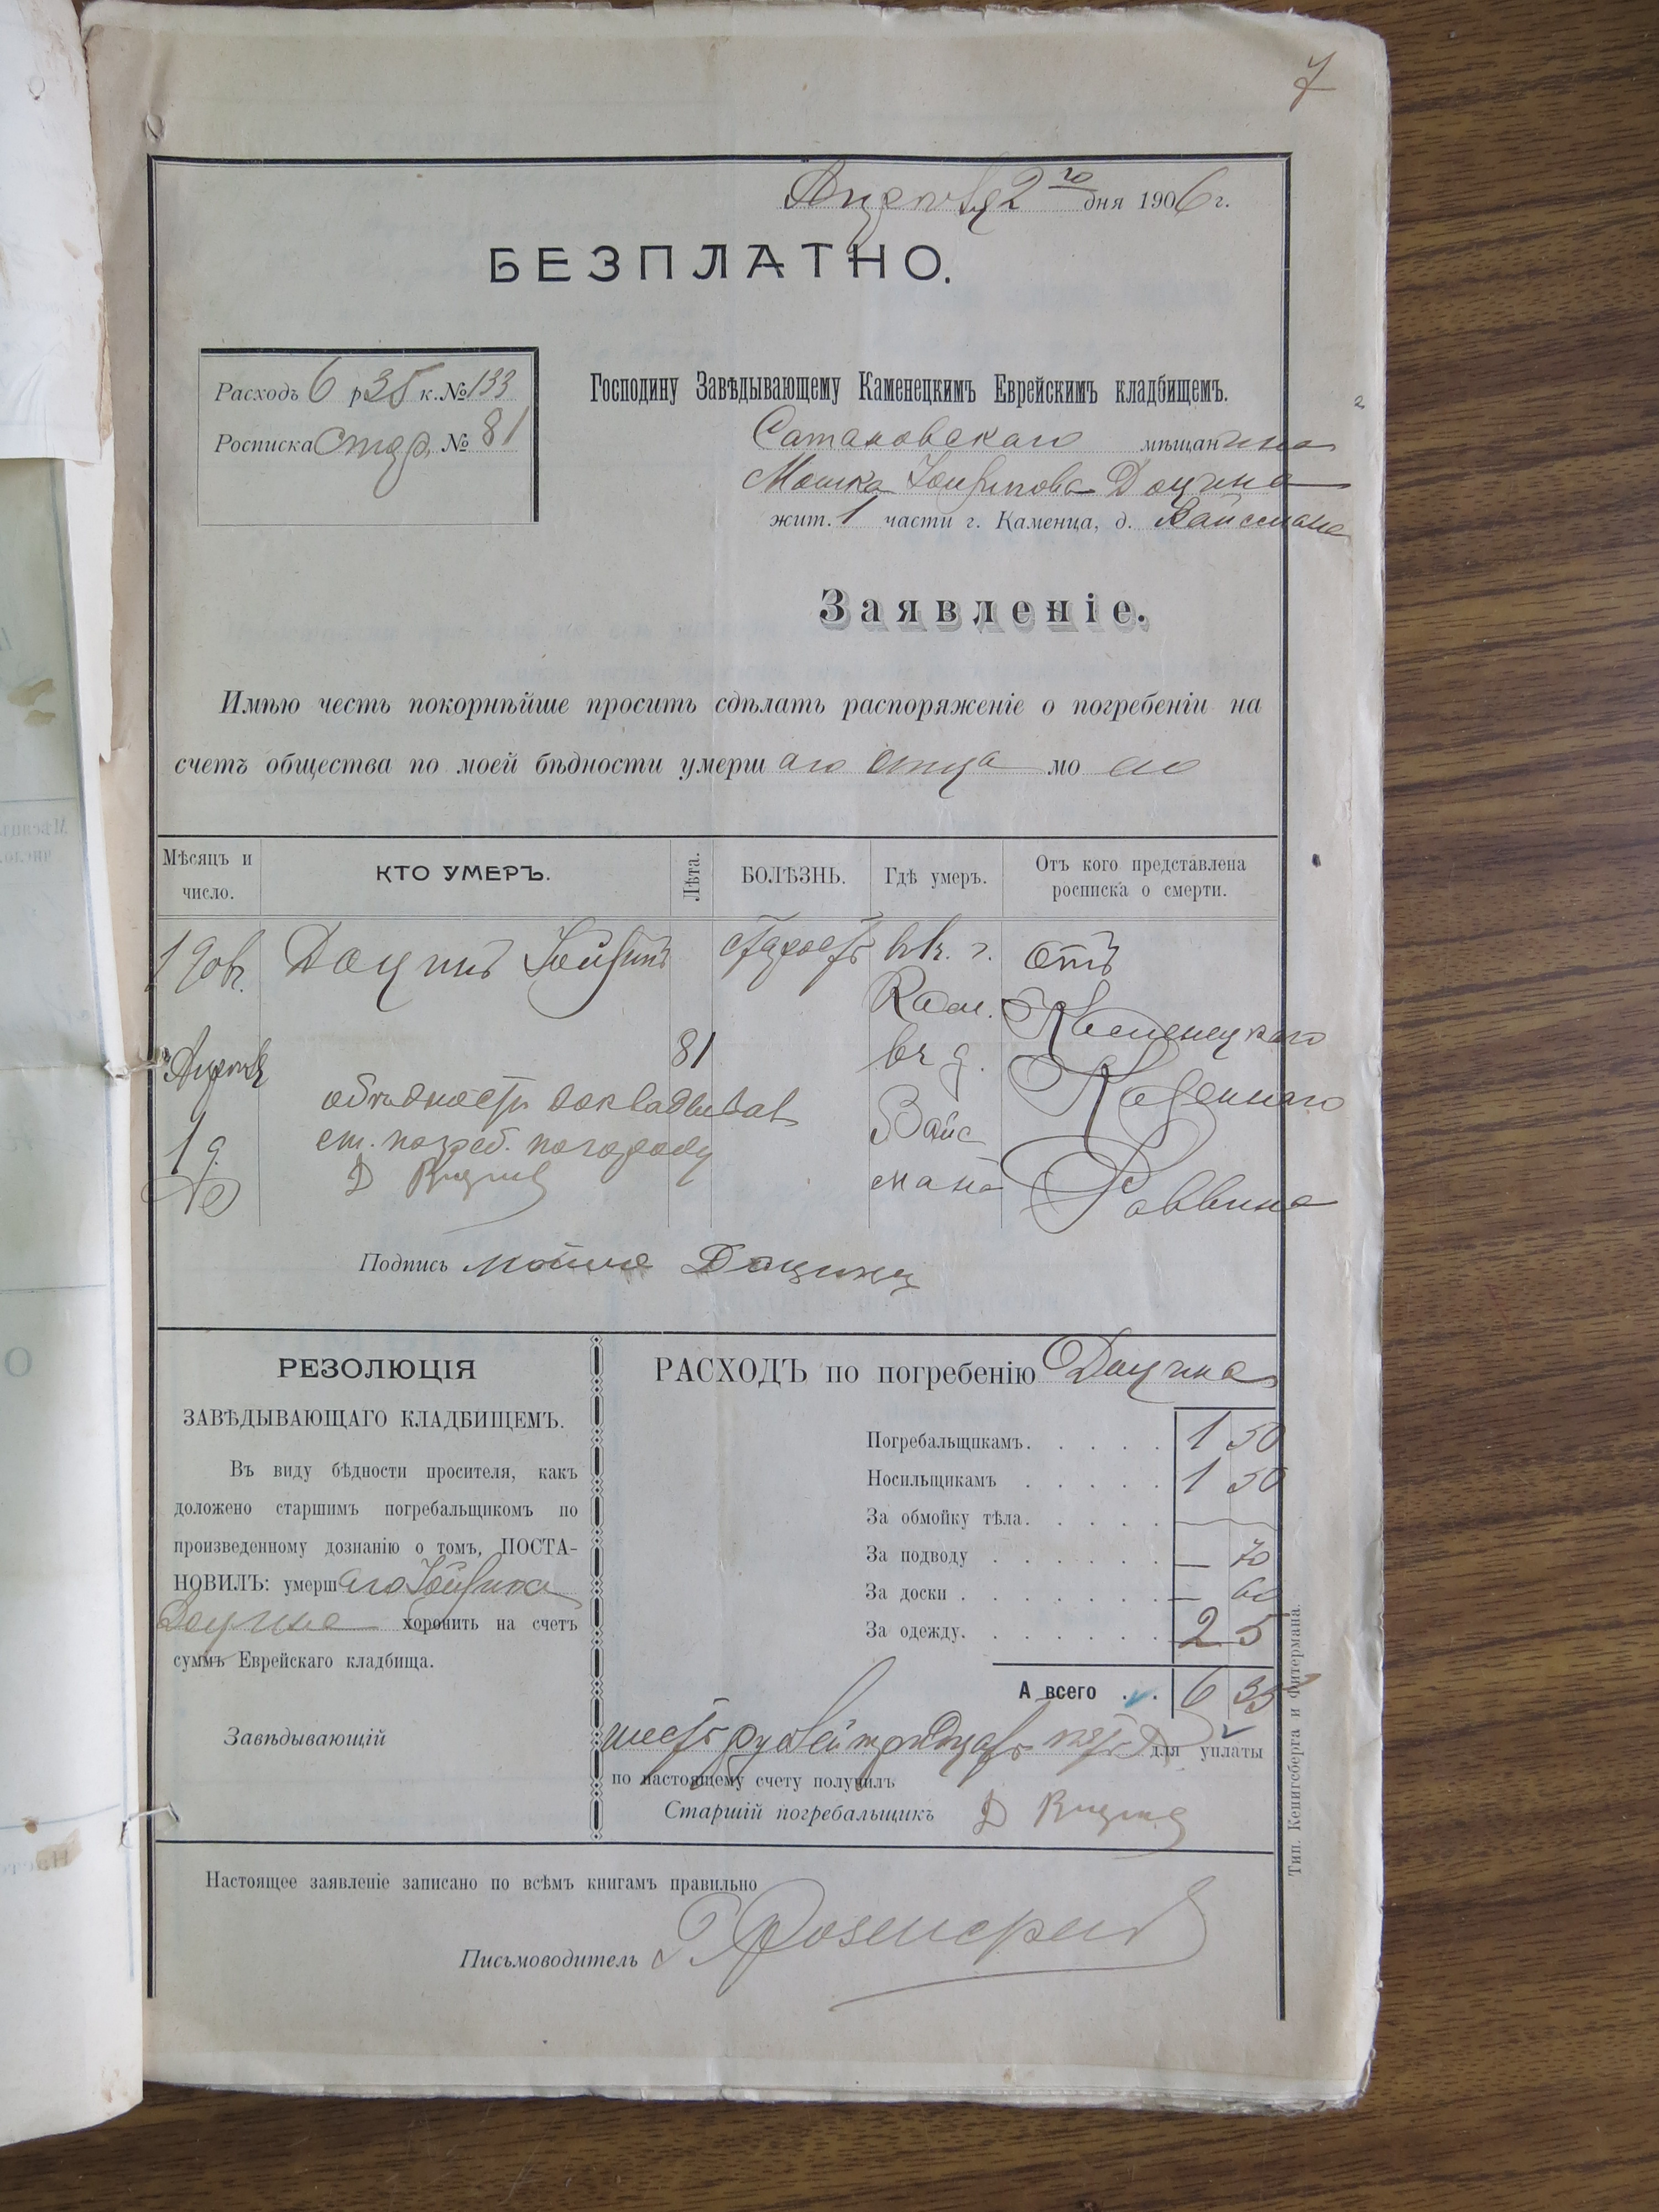 7
Апрѣля 2го дня 1906 г.
БЕЗПЛАТНО.
Расходъ 6 р 35 к. № 133
Росписка стар. № 81
Господину Завѣдывающему Каменецкимъ Еврейскимъ кладбищемъ.
Сатановскаго мѣщанина
Мошка Доцина
жит. 1 части г. Каменца, д. Вайсмана
Заявленіе.
Имѣю честь покорнѣйше просить сдѣлать распоряженіе о погребеніи на
счетъ общества по моей бѣдности умершаго отца моего
Мѣсяцъ и число. КТО УМЕРЪ. Лѣта. БОЛѢЗНЬ. Гдѣ умеръ. Отъ кого представлена росписка о смерти.
1 Доцинъ старость въ г. отъ
Кам. Каменецкаго
Апрѣля 81 въ д. Казеннаго
обѣдности докладывав
1 д. Вайс
ст. погреб.
мана Раввина
Д
Подпись Мойше Доцинъ
РЕЗОЛЮЦІЯ
ЗАВѢДЫВАЮЩАГО КЛАДБИЩЕМЪ.
Въ виду бѣдности просителя, какъ
доложено старшимъ погребальщикомъ по
произведенному дознанію о томъ, ПОСТА-
НОВИЛЪ: умершаго
Доцина хоронить на счетъ
суммъ Еврейскаго кладбища.
Завѣдывающій
РАСХОДЪ по погребенію Доцина
Погребальщикамъ. . . . . 1 50
Носильщикамъ . . . . . 1 50
За обмойку тѣла. . . . . —
За подводу . . . . . . — 70
За доски . . . . . . . — 60
За одежду. . . . . . . 2 5
А всего . . 6 35
шесть рублей тридцать пять к для уплаты
по настоящему счету получилъ
Старшій погребальщикъ Д
Настоящее заявленіе записано по всѣмъ книгамъ правильно
Письмоводитель
Тип. Кенигсберга и Фитермана.